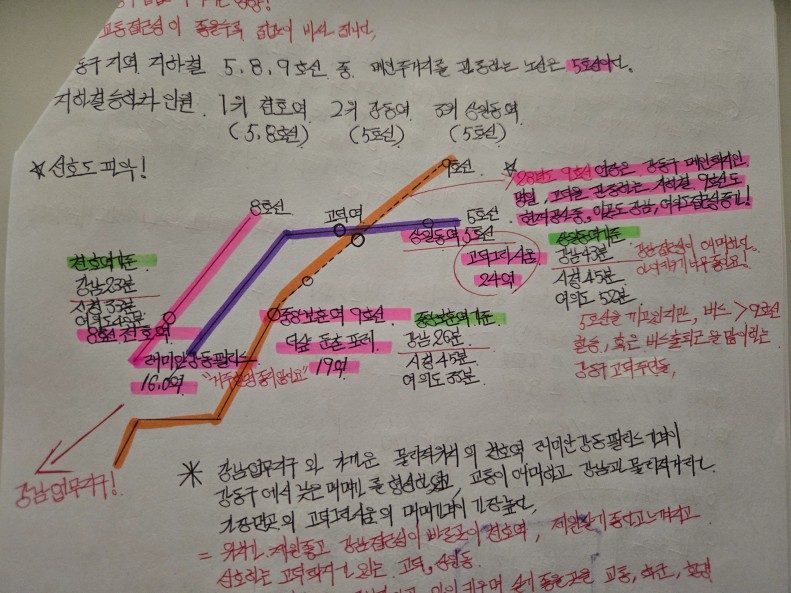 교통접근성이 좋을수록 집값이 비싼 편이다.
동구 지역 지하철 5, 8, 9호선 중 메인주거지를 관통하는 노선은 5호선이다.
지하철승하차 인원 1위 천호역 2위 강동역 3위 상일동역
(5,8호선) (5호선) (5호선)
☆선호도파악!
9호선
8호선
고덕역
5호선
☆ 28년도 9호선 연장은 강동구 메인학원지인
명일, 고덕을 관통하는 지하철 9호선도
현재공사중, 이로도 강남, 여의도접근성증가!
상일동역 5호선
고덕그라시움
24억
상일동역기준
강남 43분
시청 45분
여의도 52분
천호역기준
강남 23분
시청 33분
여의도 43분
8호선 천호역
중앙보훈역 9호선
역앞 둔촌 포레
19억
중앙보훈역기준
강남 26분
시청 45분
여의도 33분
래미안강동팰리스
16.0억
5호선을 끼고있지만, 버스 > 9호선
환승, 혹은 버스출퇴근을 많이하는
강동구 고덕주민들,
강남업무지구!
* 강남업무지구와 가까운 물리적거리의 천호역 래미안강동팰리스가격이
강동구에서 낮은 매매가를 형성하였고, 교통이 애매하고 강남과 물리적거리는
가장먼곳의 고덕그라시움의 매매가격이 가장높다.
선호하는 고덕학원가 있는 고덕, 상일동